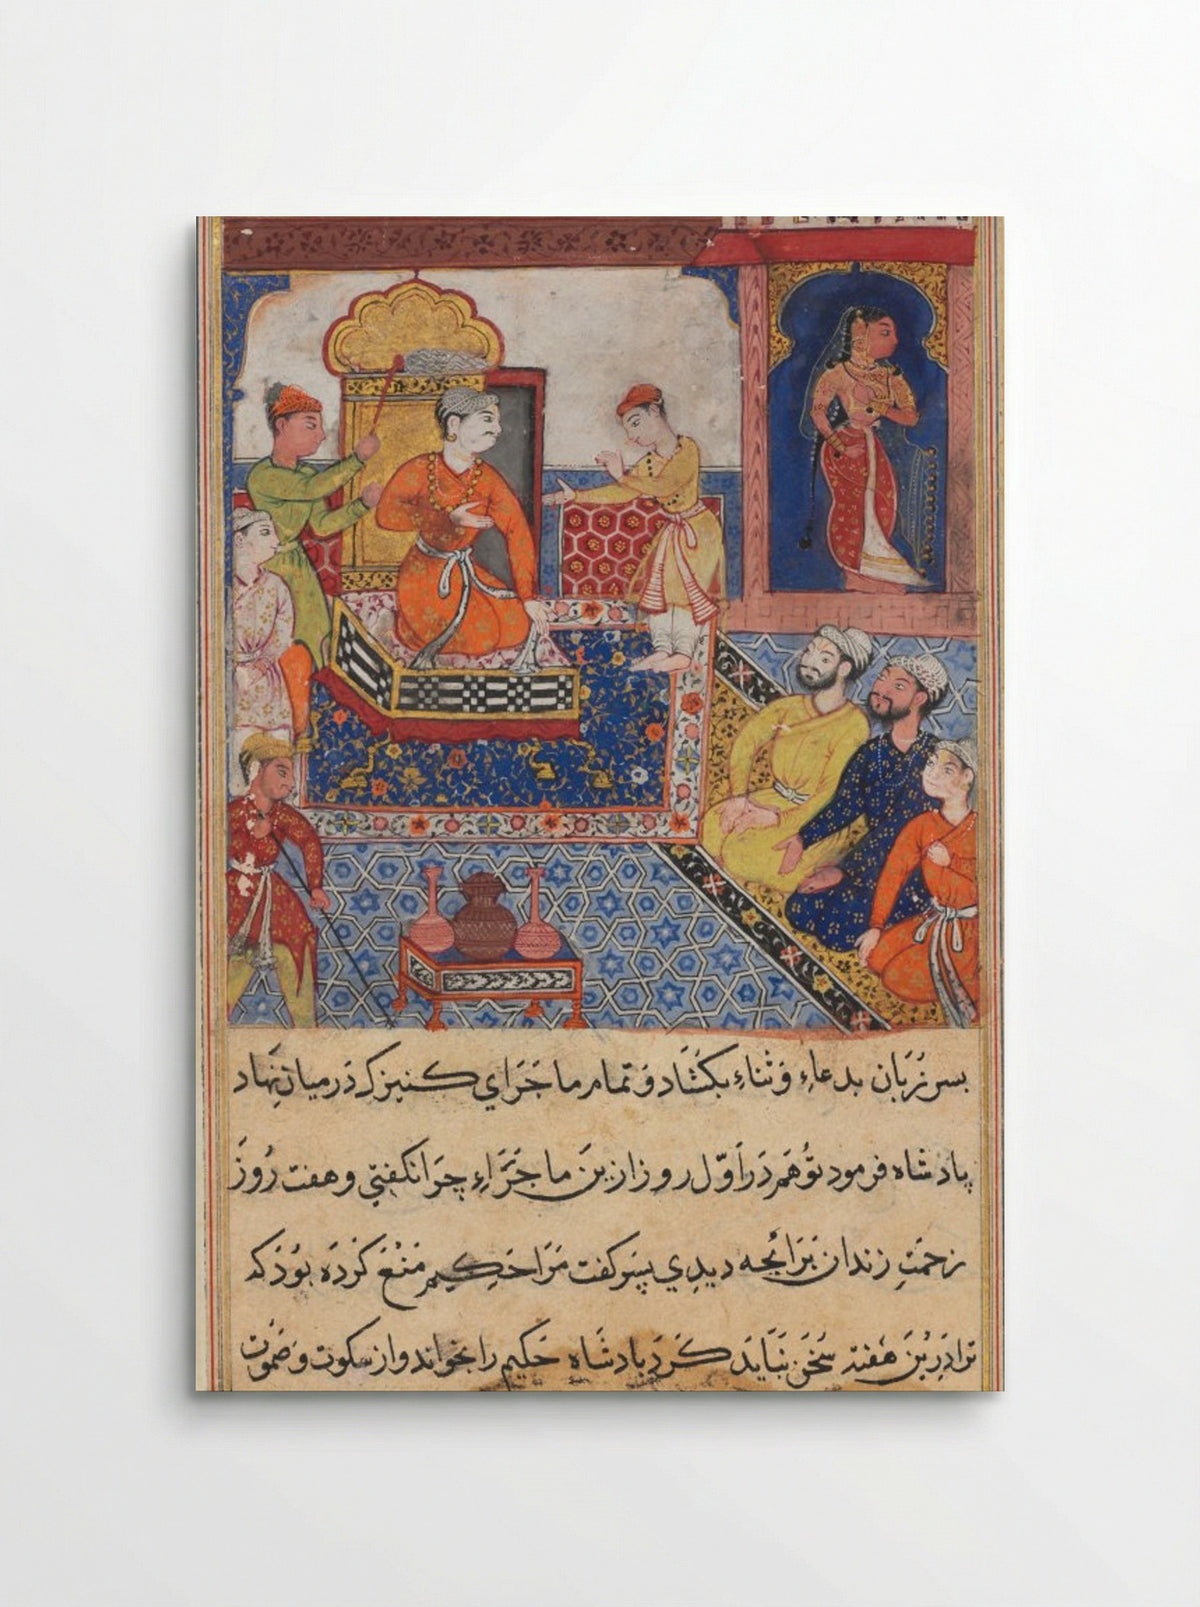 پسر زَبان بدعاءِ وَ ثناءِ بکشَاد وَ تمام ماجَرَاي کنیزک دَرمیان نِهَاد
پادشاه فرمود تُو هَم دَر اَوّل روز ازین ماجَرَاءِ چَرَا نکفتِي و هفت رُوزَ
زحمَتِ زندان بَرَایچه دیدِي پسَر کفت مَرَا حَکِیم مَنع کَردَه بُودَ که
ترا دَرین هَفته سَخَن نَبَایَد کَرَد پادشَاه حَکیم را بخواند و از سکوت وَ صَمُوت